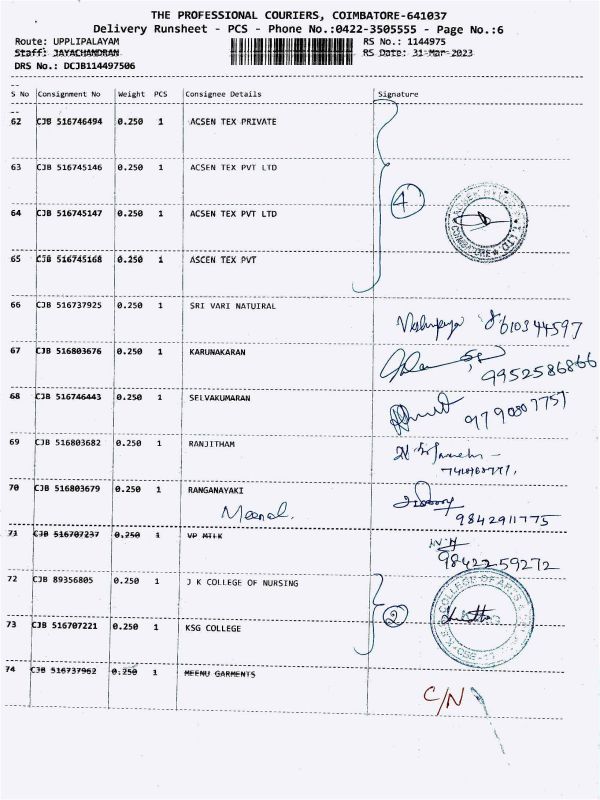 THE PROFESSIONAL COURIERS, COIMBATORE-641037
Delivery Runsheet - PCS - Phone No.:0422-3505555 - Page No.:6
Route: UPPLIPALAYAM RS No.: 1144975
Staff: JAYACHANDRAN RS Date: 31-Mar-2023
DRS No.: DCJB114497506
S No Consignment No Weight PCS Consignee Details Signature
62 CJB 516746494 0.250 1 ACSEN TEX PRIVATE
63 CJB 516745146 0.250 1 ACSEN TEX PVT LTD
4
64 CJB 516745147 0.250 1 ACSEN TEX PVT LTD
COIMBATORE
65 CJB 516745168 0.250 1 ASCEN TEX PVT
66 CJB 516737925 0.250 1 SRI VARI NATUIRAL
8610344597
67 CJB 516803676 0.250 1 KARUNAKARAN
9952586866
68 CJB 516746443 0.250 1 SELVAKUMARAN
9790307757
69 CJB 516803682 0.250 1 RANJITHAM
70 CJB 516803679 0.250 1 RANGANAYAKI
Meenal. 9842911775
71 CJB 516707237 0.250 1 VP MILK
9842259272
72 CJB 89356805 0.250 1 J K COLLEGE OF NURSING
COLLEGE OF ARTS &
2
73 CJB 516707221 0.250 1 KSG COLLEGE
74 CJB 516737962 0.250 1 MEENU GARMENTS
C/N